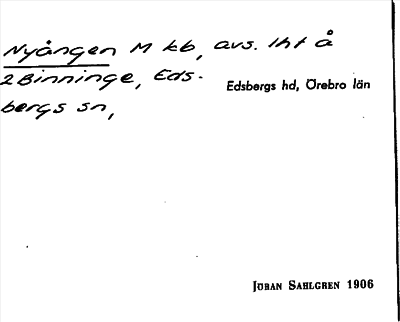 Nyången M kb, avs. lht å
2 Binninge, Eds-
bergs sn,
Edsbergs hd, Örebro län
Jöran Sahlgren 1906